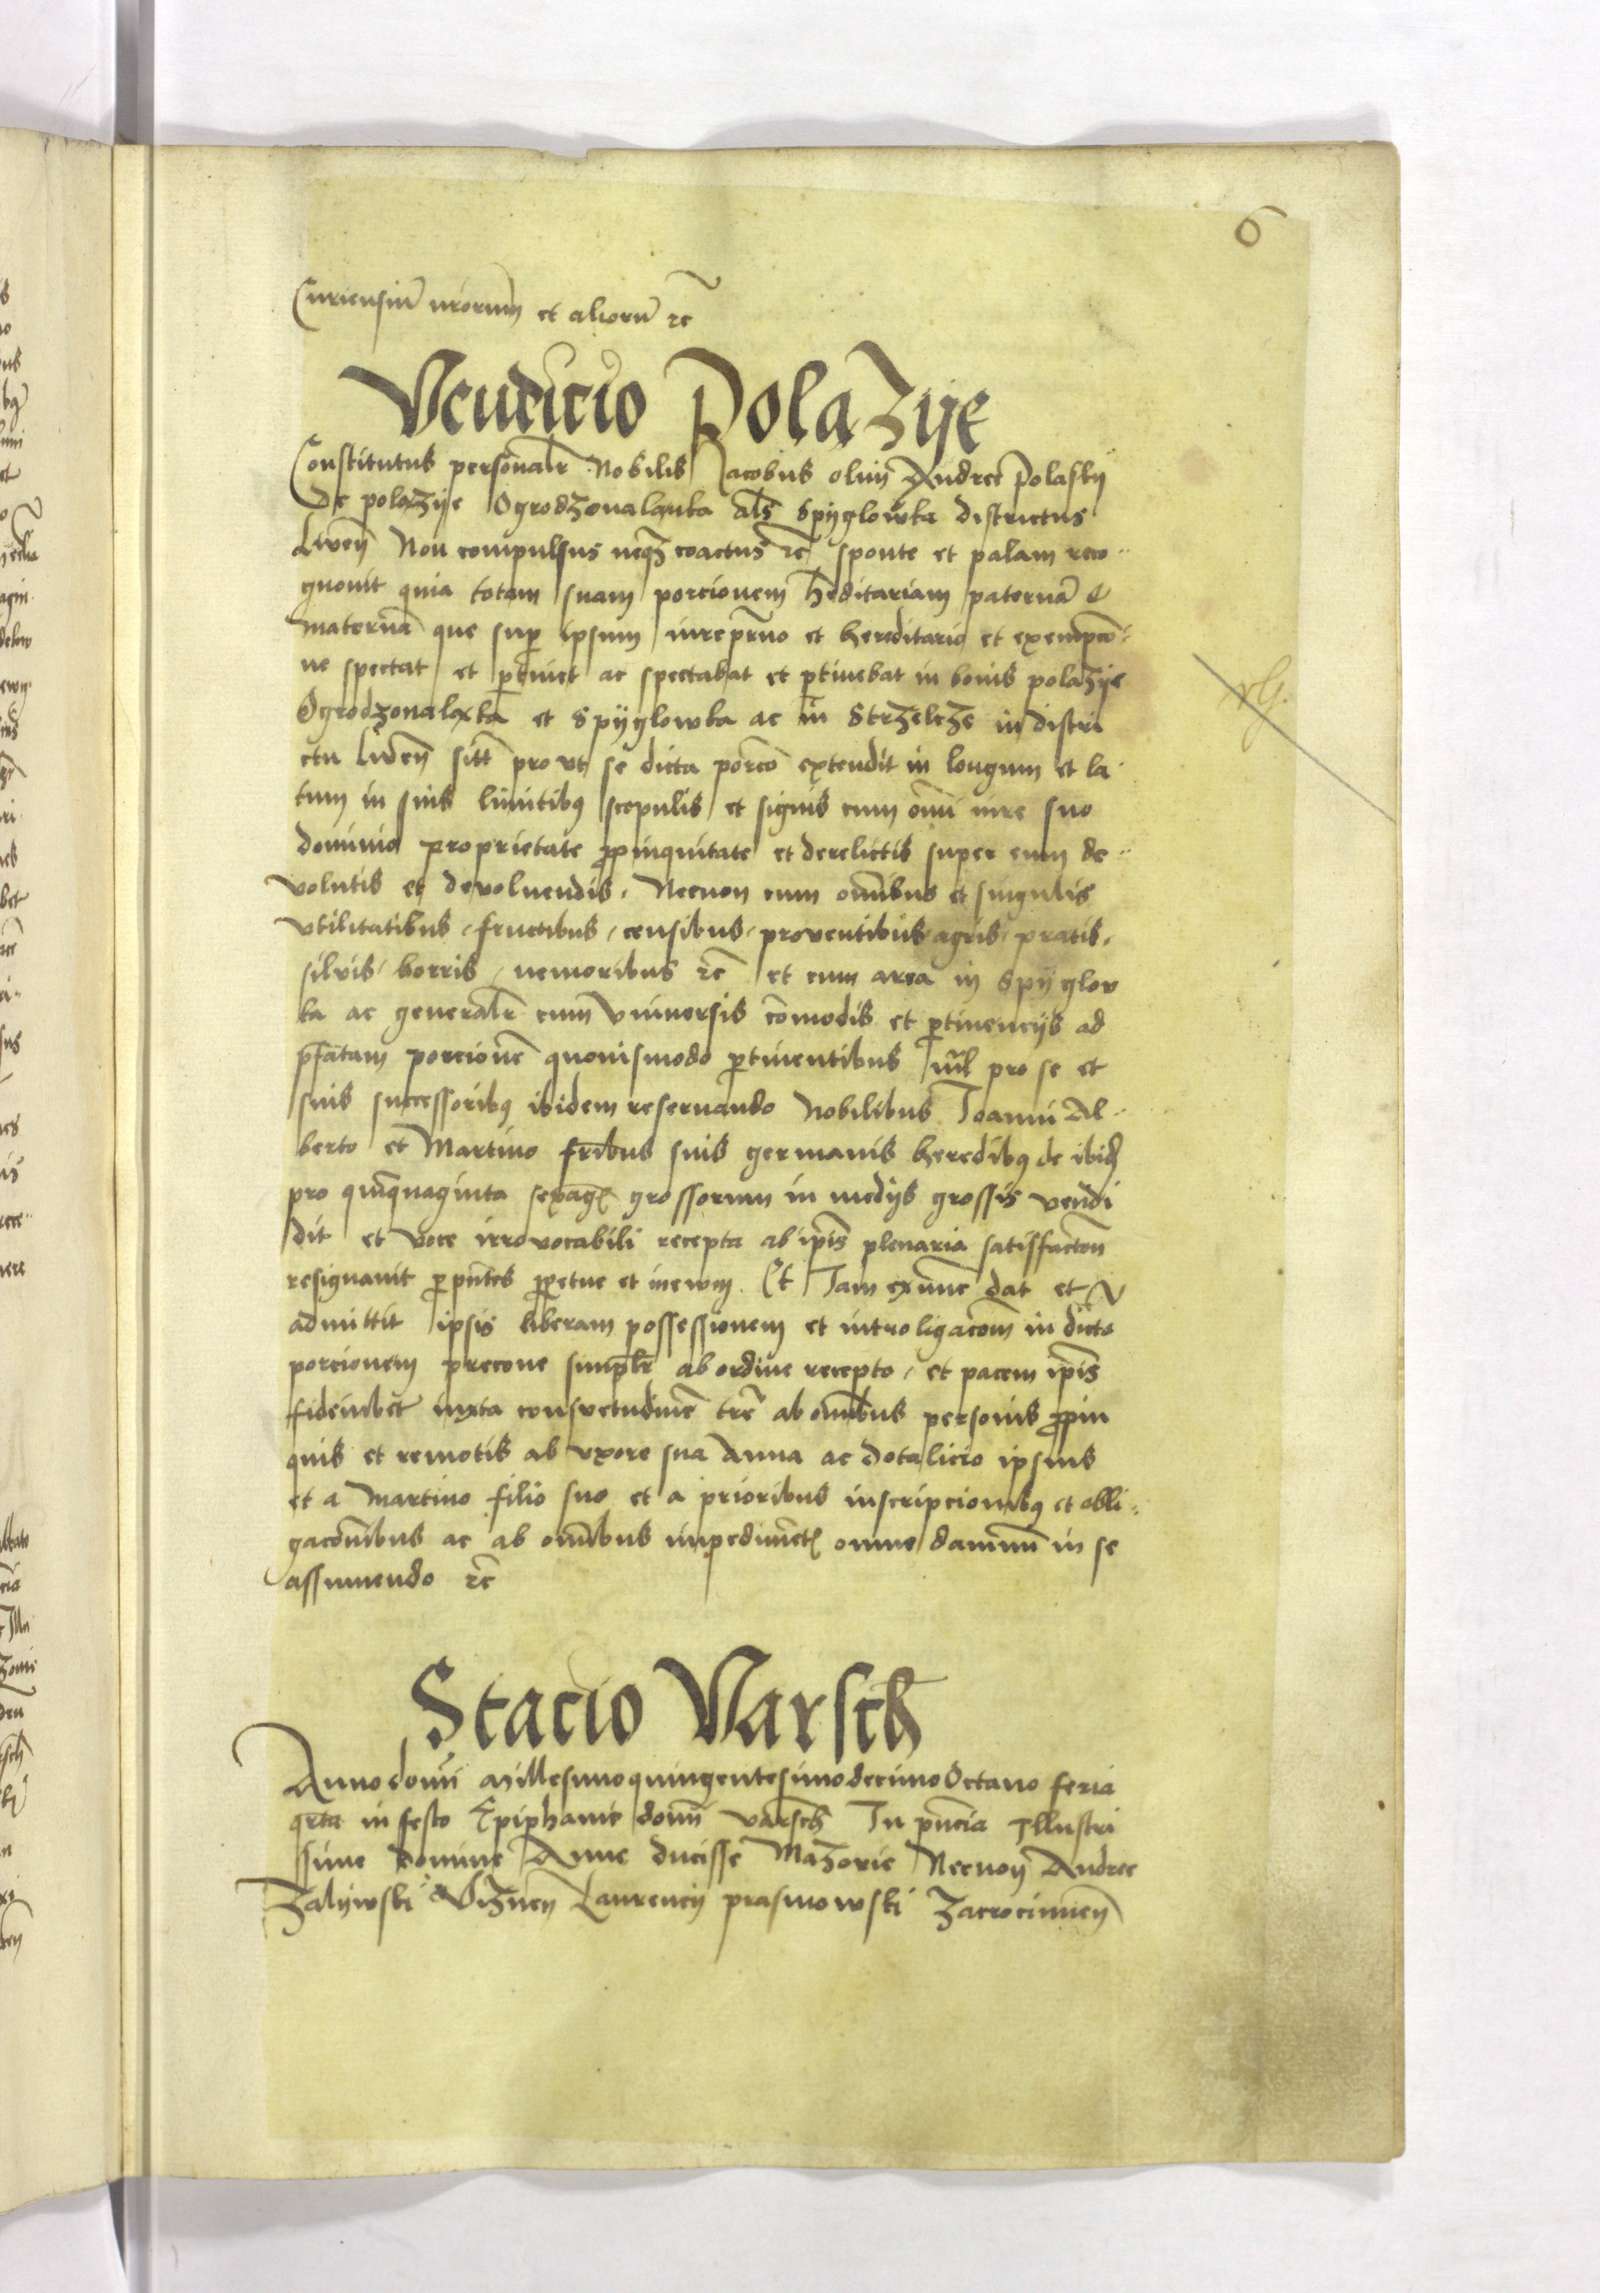 6
Curiensiu nrorum et alioru rc
Vendicio Polazije
Constitutus personalr Nobilis Jacobus olim Andree Polaskij
De polazije Ogrodzonalanka als Spijglowka districtus
Liven Non compulsus neqz coactus rc sponte et palam reco
gnovit quia totam suam porcionem hreditariam paterna et
materna que sup ipsum iure prno et hereditario et exempco
ne spectat et ptinet ac spectabat et ptinebat in bonis polazije
Ogrodzonalaka et Spijglowka ac in Strzelcze in distri
ctu Liven sitt prout se dicta porco extendit in longum et la
tum in suis limitibus scopulis et signis cum omi iure suo
dominio proprietate ppinquitate et derelictis super eum de
volutis et devoluendis. Necnon cum omibus et singulis
utilitatibus, fructibus, censibus, proventibus agris, pratis,
silvis, borris, nemoribus rc et cum area in Spijglow
ka ac generalr cum universis comodis et ptinencijs ad
pfatam porcione quovismodo ptinentibus nil pro se et
suis successoribus ibidem reservando Nobilibus Joanni Al
berto et Martino fribus suis germanis heredibus de ibid
pro quinquaginta sexag grossorum in medijs grossis vendi
dit et voce irrevocabili recepta ab ipis plenaria satisfacton
resignavit p pntes ppetue et in ewm. Et Jam exnunc dat et
admittit ipsis liberam possessionem et intro ligacom in dicta
porcionem precone simplr ab ordine recepto, et pacem ipis
fideiubet iuxta consuetudine tre ab omibus personis ppin
quis et remotis ab uxore sua Anna ac dotalicio ipsius
et a Martino filio suo et a prioribus inscripcionibus et obli
gaconibus ac ab omibus impedimet omne damnu in se
assumendo rc
Stacio Varsch
Anno domi Millesimoquingentesimodecimo Octavo feria
qrta in festo Epiphanie domi Varsch In pncia Illustri
ssime domine Anne ducisse Mazovie Necnon Andree
Zalijwski Viznen Laurencij prasmowski Zacrocimen